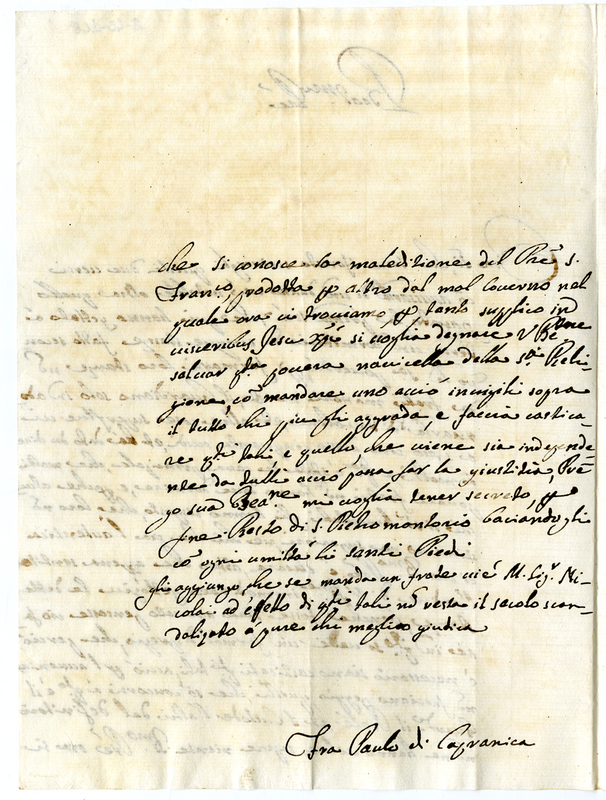 che si conosce la maleditione del Pre͂ S.
Franco. prodotta p altro dal mal Governo nel
quale ora ci troviamo, p tanto supplico in
visceribus Jesu Xpi si voglia degnare V Btne
salvar qta povera navicella della sta Reli-
gione, co͂ mandare uno acciò invigili sopra
il tutto chi piu gli aggrada, e faccia castica-
re qti tali e quello, che viene sia indepede͂-
nte da tutti acciò possa far la giustitia, Pre͂-
go sua Beane. mi voglia tener secreto, p
fine Resto di S. Pietromontorio baciandogli
co͂ ogni umiltà li santi Piedi
gli aggiungo, che se manda un frate vie͂ M. Sigr. Ni-
colai ad effetto di qti tali no͂ resta il secolo scan-
dalizato ò pure chi meglio giudica
Fra Paulo di Capranica